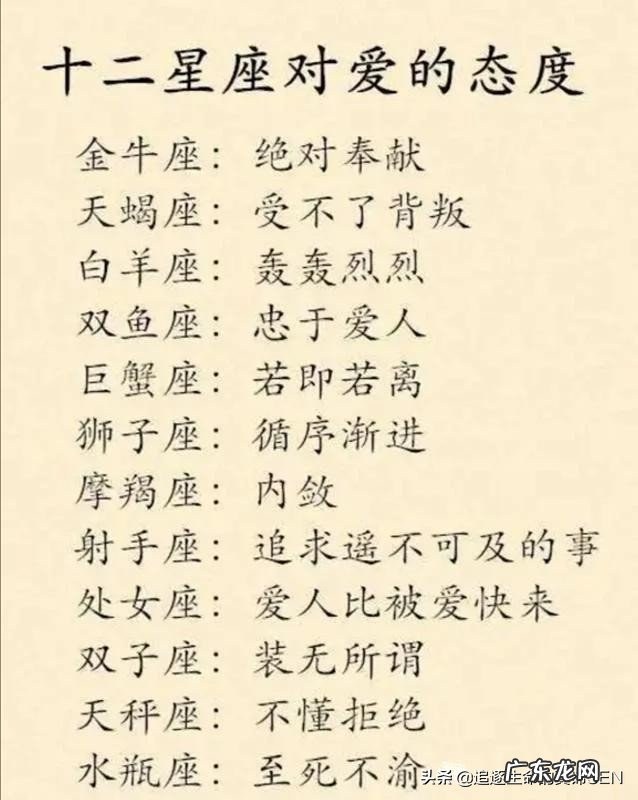 十二星座对爱的态度
金牛座：绝对奉献
天蝎座：受不了背叛
白羊座：轰轰烈烈
双鱼座：忠于爱人
巨蟹座：若即若离
狮子座：循序渐进
摩羯座：内敛
射手座：追求遥不可及的事
处女座：爱人比被爱快来
双子座：装无所谓
天秤座：不懂拒绝
水瓶座：至死不渝
头条 @追逐生命
广东龙网